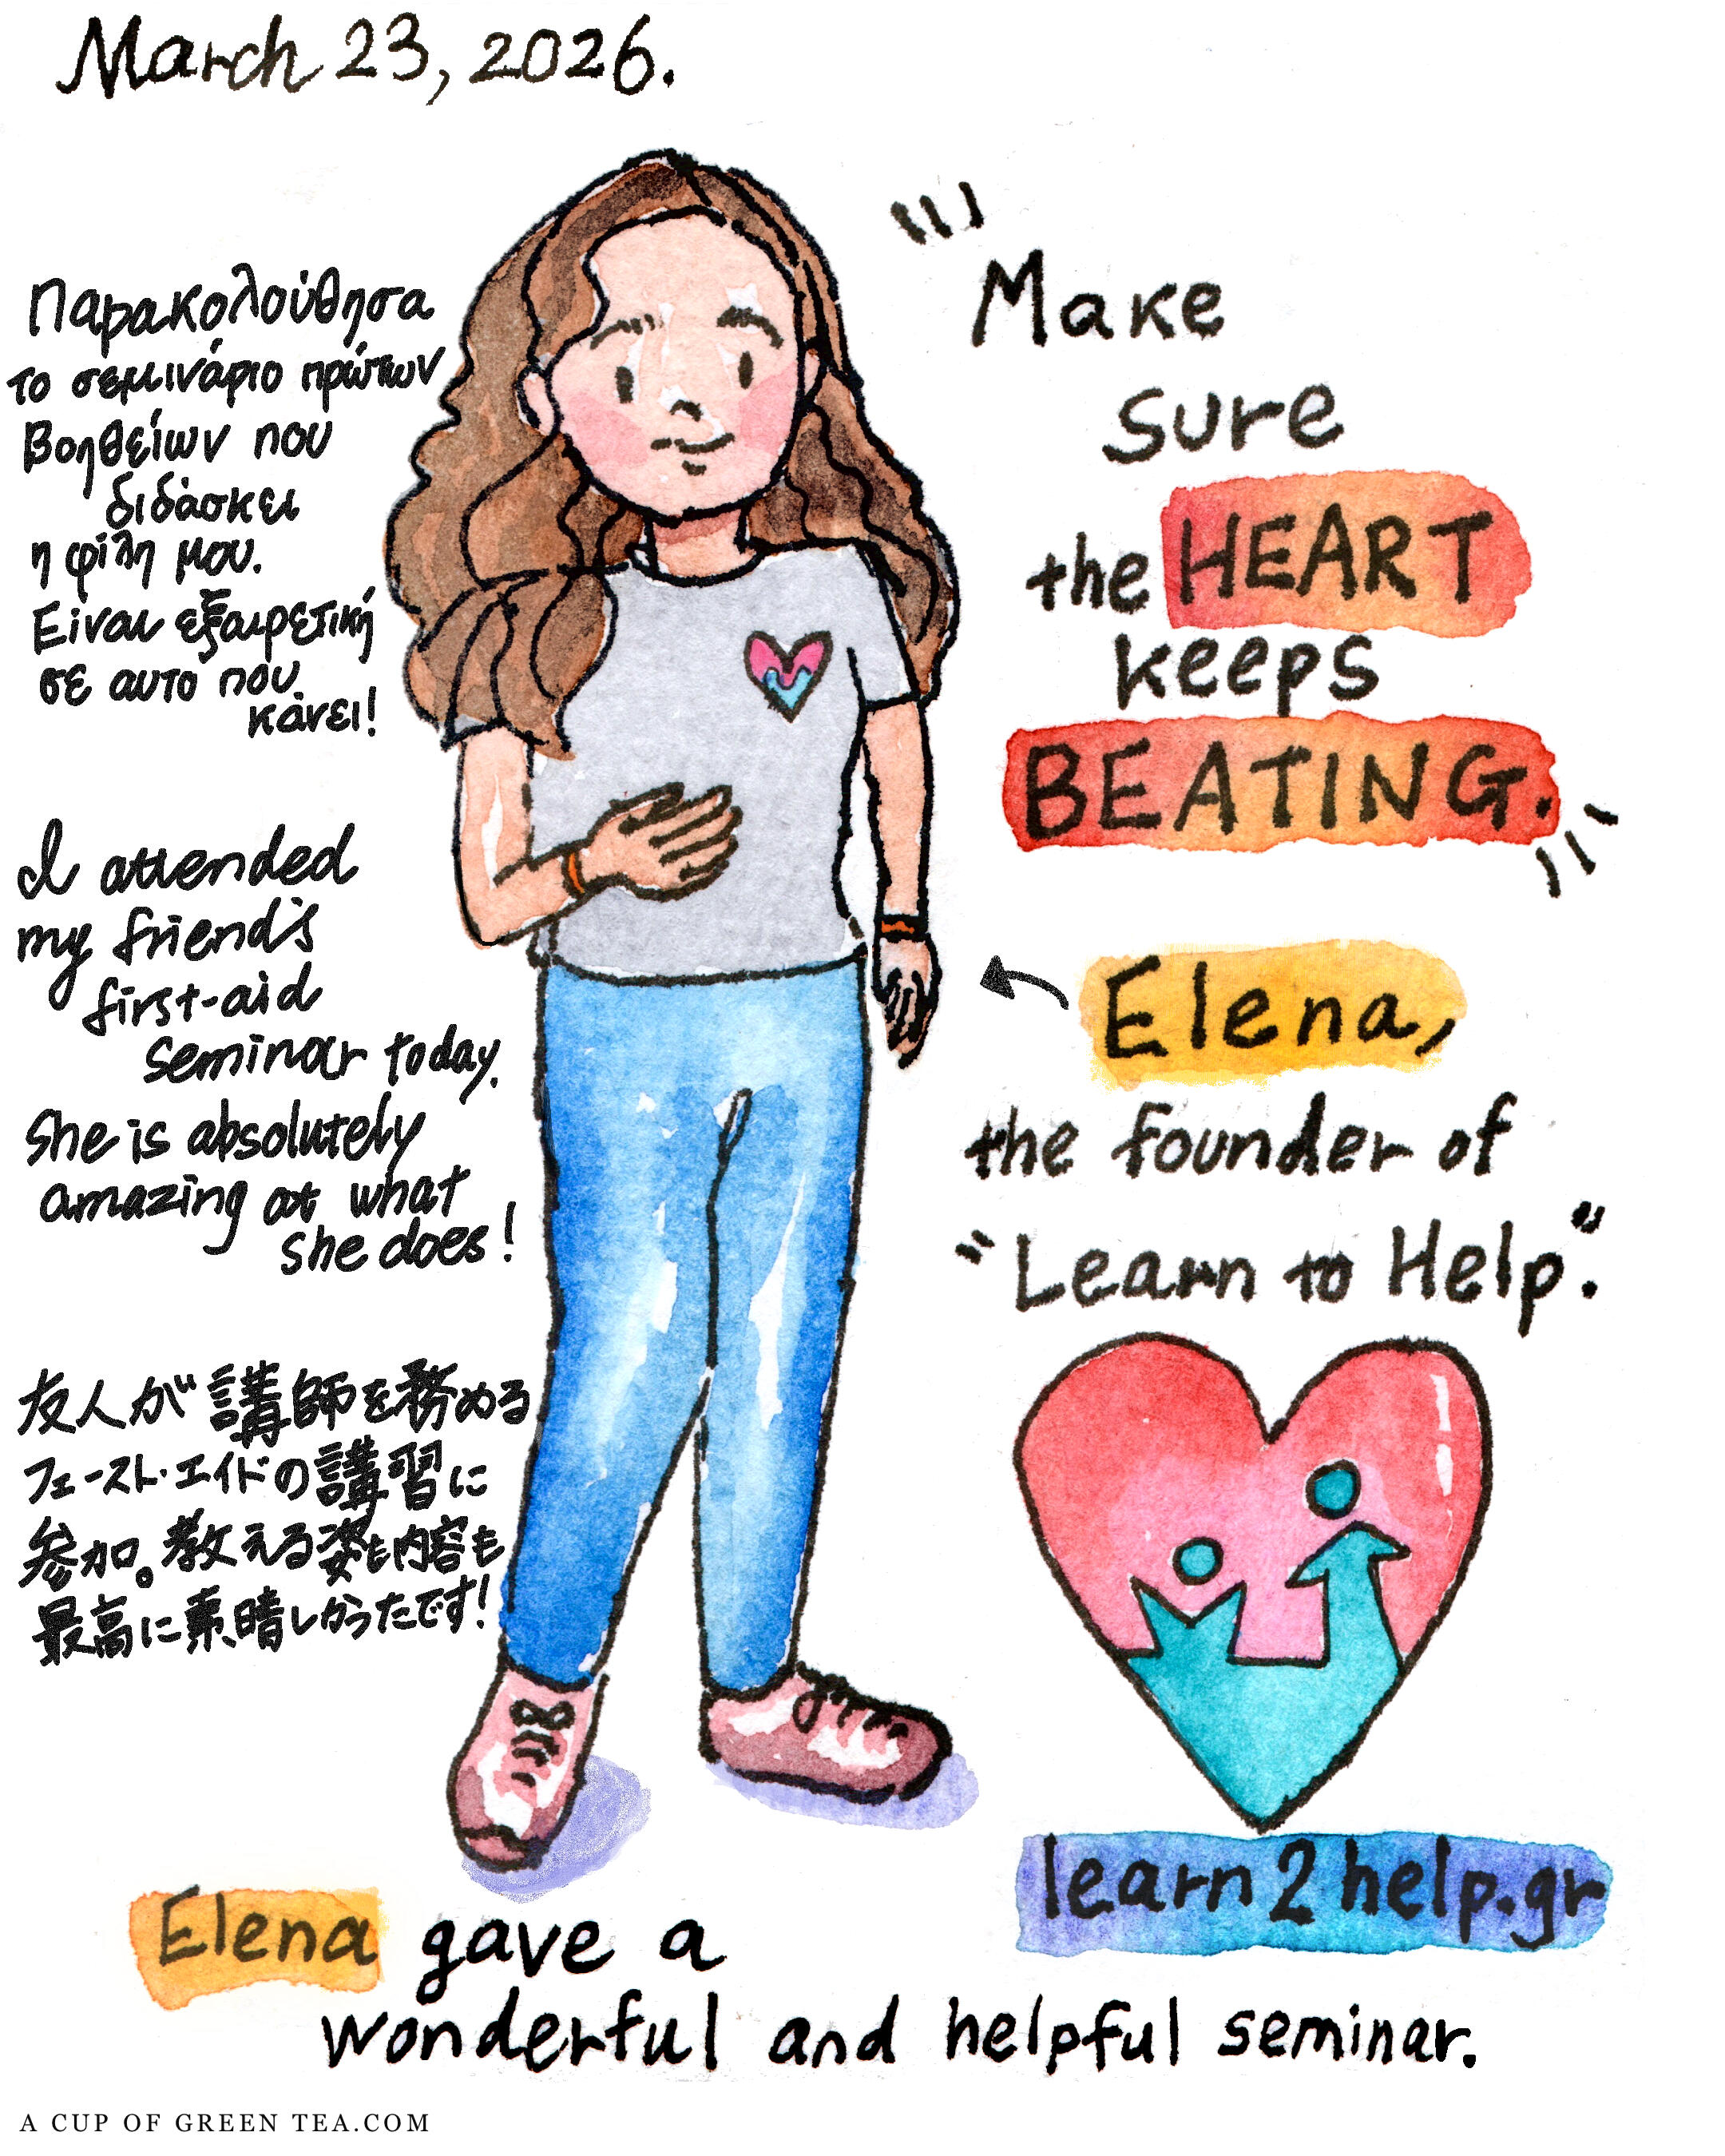 March 23, 2026.
Παρακολούθησα
το σεμινάριο πρώτων
Βοηθείων που
διδάσκει
η φίλη μου.
Είναι εξαιρετική
σε αυτό που
κάνει!
I attended
my friend's
first-aid
seminar today.
She is absolutely
amazing at what
she does!
友人が講師を務める
フェースト・エイドの講習に
参加。教える姿も内容も
最高に素晴しかったです!
"Make
sure
the HEART
keeps
BEATING."
Elena,
the founder of
"Learn to Help".
learn2help.gr
Elena gave a
wonderful and helpful seminar.
A CUP OF GREEN TEA.COM